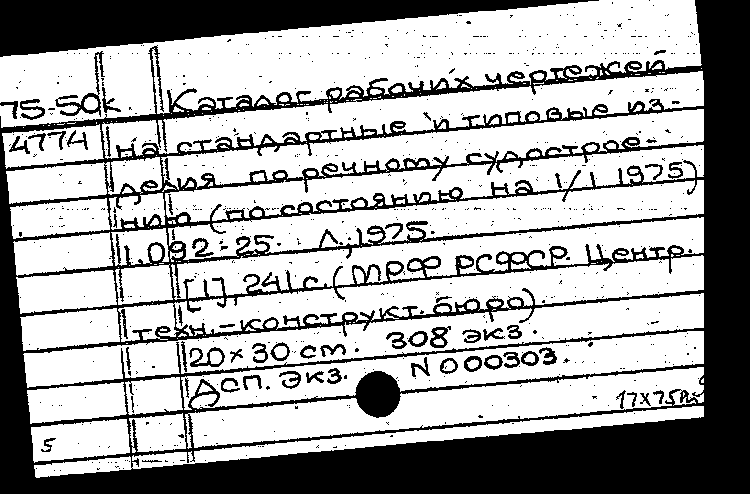 75-50к Каталог рабочих чертежей
4774 на стандартные и типовые из-
делия по речному судострое-
нию (по состоянию на 1/I 1975)
1.092-25. Л., 1975.
[1], 241 с. (МРФ РСФСР. Центр.
техн.-конструкт. бюро)
20×30 cm. 308 экз.
Дсп. Экз. N 000303.
5